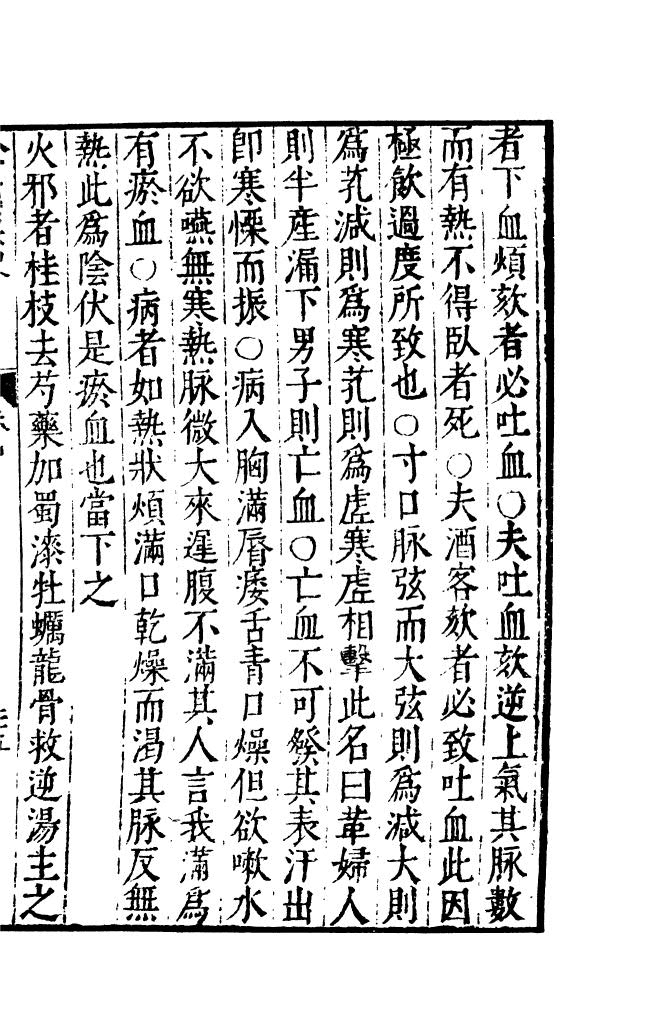 者下血煩欬者必吐血○夫吐血欬逆上氣其脉數
而有熱不得臥者死○夫酒客欬者必致吐血此因
極飲過度所致也○寸口脉弦而大弦則為減大則
為芤減則為寒芤則為虛寒虛相擊此名曰革婦人
則半產漏下男子則亡血○亡血不可發其表汗出
即寒慄而振○病人胸滿脣痿舌青口燥但欲嗽水
不欲嚥無寒熱脉微大來遲腹不滿其人言我滿為
有瘀血○病者如熱狀煩滿口乾燥而渴其脉反無
熱此為陰伏是瘀血也當下之
火邪者桂枝去芍藥加蜀漆牡蠣龍骨救逆湯主之